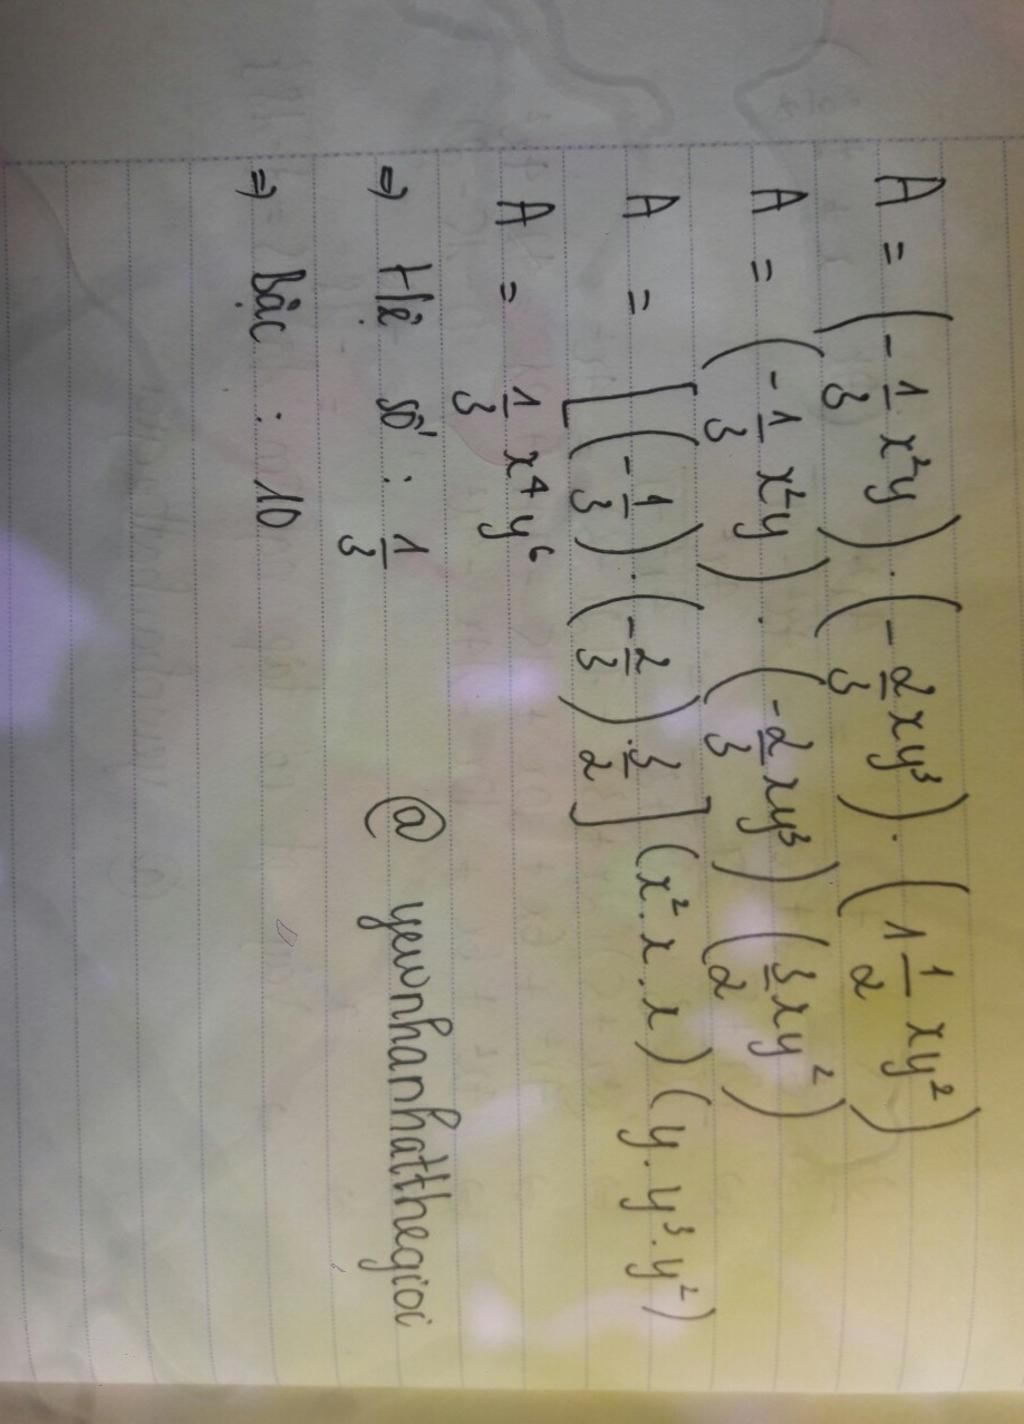 A = (-1/3 x²y) . (-2/3 xy³) . (1 1/2 xy²)
A = (-1/3 x²y) . (-2/3 xy³) (3/2 xy²)
A = [(-1/3) . (-2/3) . 3/2] (x² . x . x) (y . y³ . y²)
A = 1/3 x⁴y⁶
⇒ Hệ số : 1/3
⇒ Bậc : 10
@ yewnhanhatthegioi